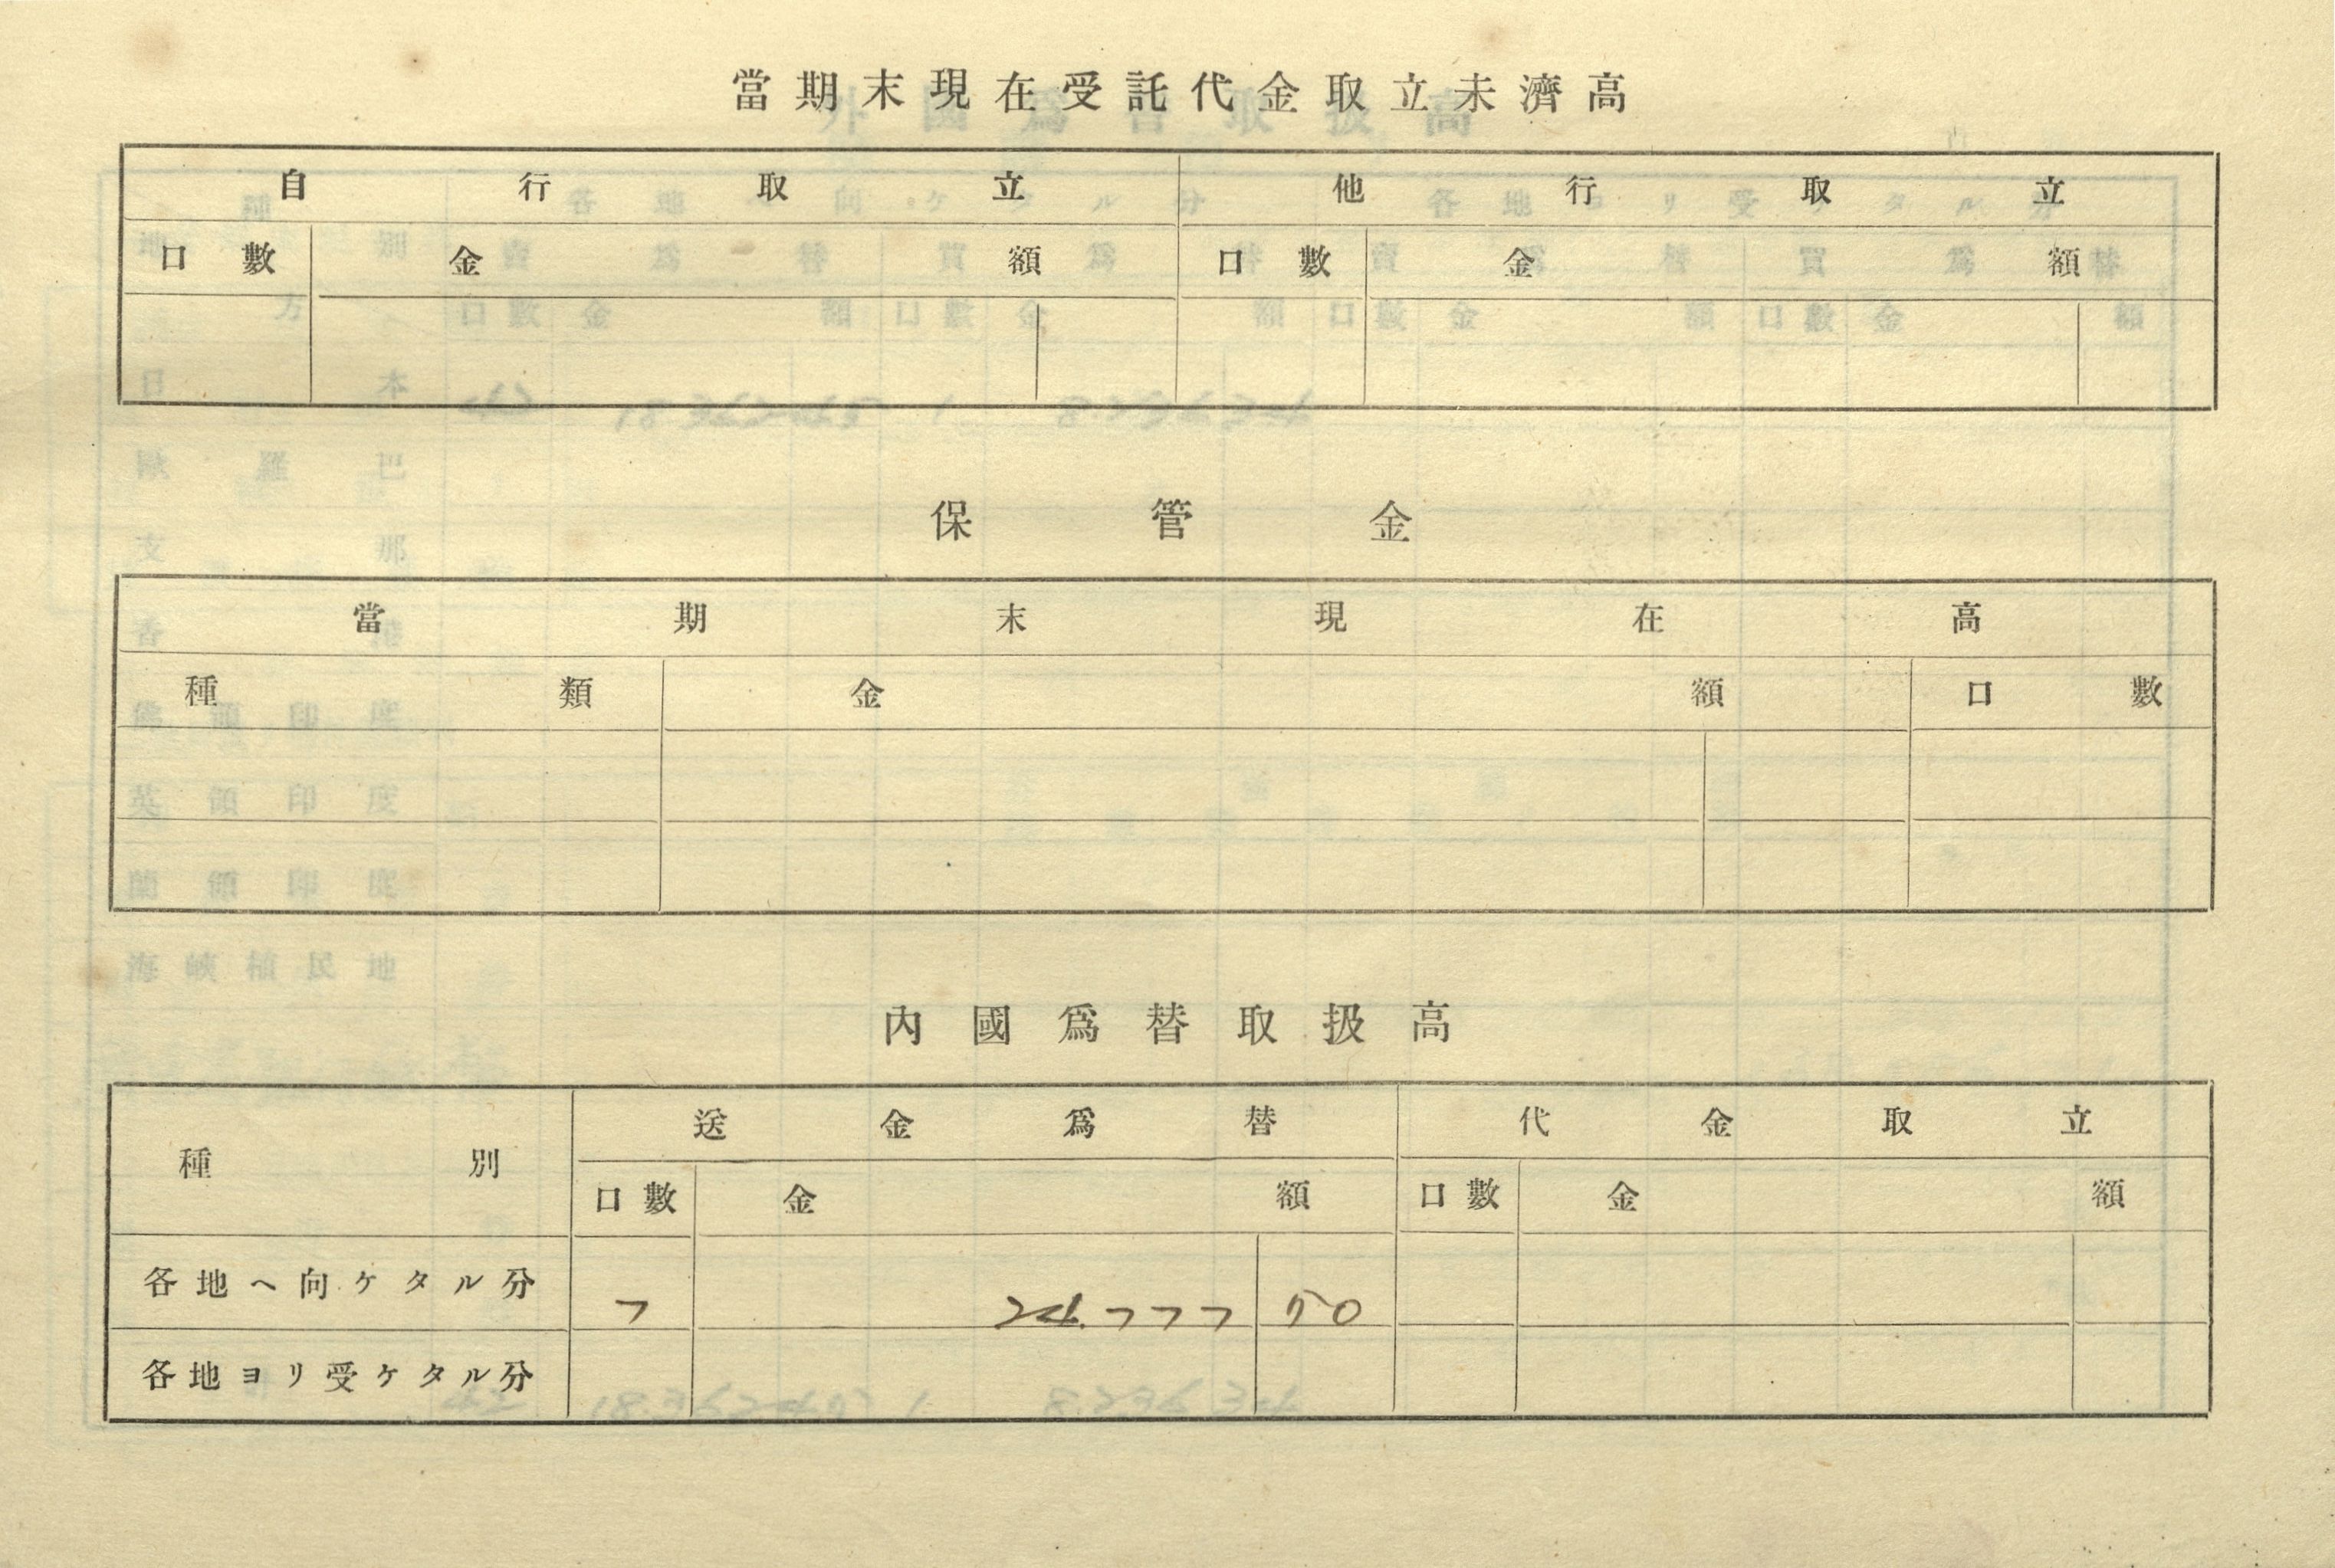 當期末現在受託代金取立未濟高
自行取立 他行取立
口數 金額 口數 金額
保管金
當期末現在高
種類 金額 口數
內國爲替取扱高
種別 送金爲替 代金取立
口數 金額 口數 金額
各地ヘ向ケタル分 7 24.777 50
各地ヨリ受ケタル分